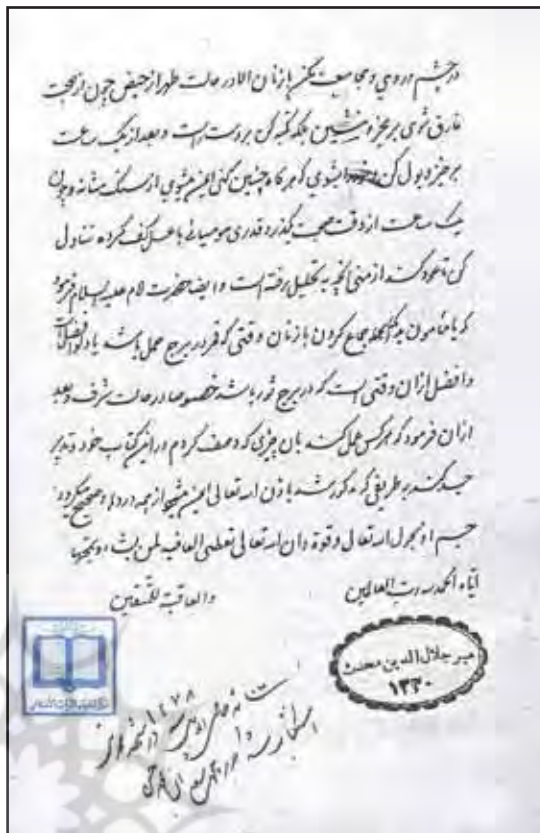 در چشم و روی و مجامعت مکن با زنان الا در حالت طهر از حیض چون از صحبت
فارغ شوی برمخیز و منشین بلکه تکیه کن بر دست راست و بعد از یک ساعت
برخیز و بول کن و بشوی که هر گاه چنین کنی ایمن شوی از سنگ مثانه و چون
یک ساعت از وقت صحبت بگذرد قدری مومیائی با عسل کف کرده تناول
کن تا عود کند از منی آنچه به تحلیل رفته است و ایضا حضرت امام علیه السلام فرمود
که یا مامون بدانکه جماع کردن با زنان وقتی که قمر در برج حمل باشد یا دلو
و افضل ازان وقتی است که در برج ثور باشد خصوصا در حالت شرف و بعد
ازان فرمود که هر کس عمل کند بان چیزی که وصف کردم در این کتاب خود و تدبیر
جسد کند بطریقی که مذکور شد باذن الله تعالی ایمن میشود از همه دردها و صحیح میگردد
جسم او بحول الله تعالی و قوته و ان الله تعالی یعطی العافیه لمن یشاء و یمنحها
ایاه الحمد لله رب العالمین والعاقبة للمتقین
میر جلال الدین محدث
۱۳۳۰
۱۴۷۸